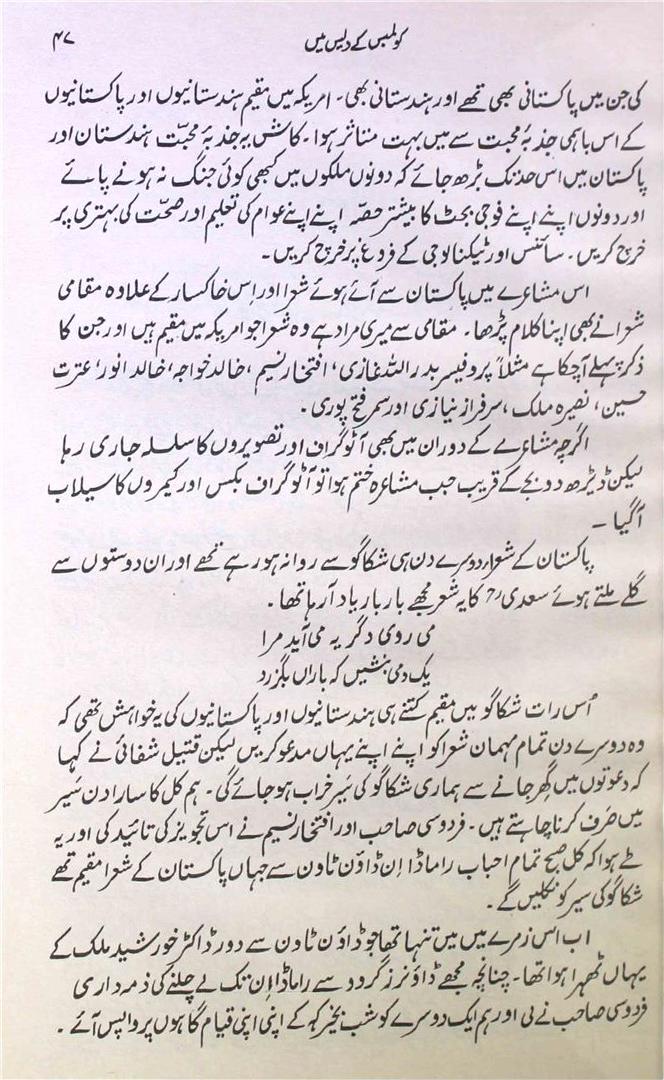 کولمبس کے دیس میں
۴۷
کی جن میں پاکستانی بھی تھے اور ہندستانی بھی۔ امریکہ میں مقیم ہندستانیوں اور پاکستانیوں
کے اس باہمی جذبۂ محبت سے میں بہت متاثر ہوا۔ کاش یہ جذبۂ محبّت ہندستان اور
پاکستان میں اس حد تک بڑھ جائے کہ دونوں ملکوں میں کبھی کوئی جنگ نہ ہونے پائے
اور دونوں اپنے اپنے فوجی بجٹ کا بیشتر حصّہ اپنے اپنے عوام کی تعلیم اور صحّت کی بہتری پر
خرچ کریں۔ سائنس اور ٹیکنالوجی کے فروغ پر خرچ کریں۔
اس مشاعرے میں پاکستان سے آئے ہوئے شعرا اور اِس خاکسار کے علاوہ مقامی
شعرا نے بھی اپنا کلام پڑھا۔ مقامی سے میری مراد ہے وہ شعرا جو امریکہ میں مقیم ہیں اور جن کا
ذکر پہلے آچکا ہے مثلاً پروفیسر بدر اللہ غازی، افتخار نسیم، خالد خواجہ، خالد انور، عزت
حسین، نصیرہ ملک، سرفراز نیازی اور سمر فتح پوری۔
اگرچہ مشاعرے کے دوران میں بھی آٹوگراف اور تصویروں کا سلسلہ جاری رہا
لیکن ڈیڑھ دو بجے کے قریب جب مشاعرہ ختم ہوا تو آٹوگراف بکس اور کیمروں کا سیلاب
آگیا ۔
پاکستان کے شعراء دوسرے دن ہی شکاگو سے روانہ ہو رہے تھے اور ان دوستوں سے
گلے ملتے ہوئے سعدیؒ کا یہ شعر مجھے بار بار یاد آرہا تھا۔
می روی دگریہ می آید مرا
یک دمی بنشیں کہ باراں بگزرد
اُس رات شکاگو میں مقیم کتنے ہی ہندستانیوں اور پاکستانیوں کی یہ خواہش تھی کہ
وہ دوسرے دن تمام مہمان شعرا کو اپنے اپنے یہاں مدعو کریں لیکن قتیل شفائی نے کہا
کہ دعوتوں میں گھِر جانے سے ہماری شکاگو کی سَیر خراب ہوجائے گی۔ ہم کل کا سارا دن سَیر
میں صَرف کرنا چاہتے ہیں۔ فردوسی صاحب اور افتخار نسیم نے اس تجویز کی تائید کی اور یہ
طے ہوا کہ کل صبح تمام احباب راماڈا اِن ڈاؤن ٹاون سے جہاں پاکستان کے شعرا مقیم تھے
شکاگو کی سیر کو نکلیں گے۔
اب اس زمرے میں میں تنہا تھا جو ڈاؤن ٹاون سے دور ڈاکٹر خورشید ملک کے
یہاں ٹھہرا ہوا تھا۔ چنانچہ مجھے ڈاؤنرز گروو سے راماڈا اِن تک لے چلنے کی ذمہ داری
فردوسی صاحب نے لی اور ہم ایک دوسرے کو شب بخیر کہہ کے اپنی اپنی قیام گاہوں پر واپس آئے۔